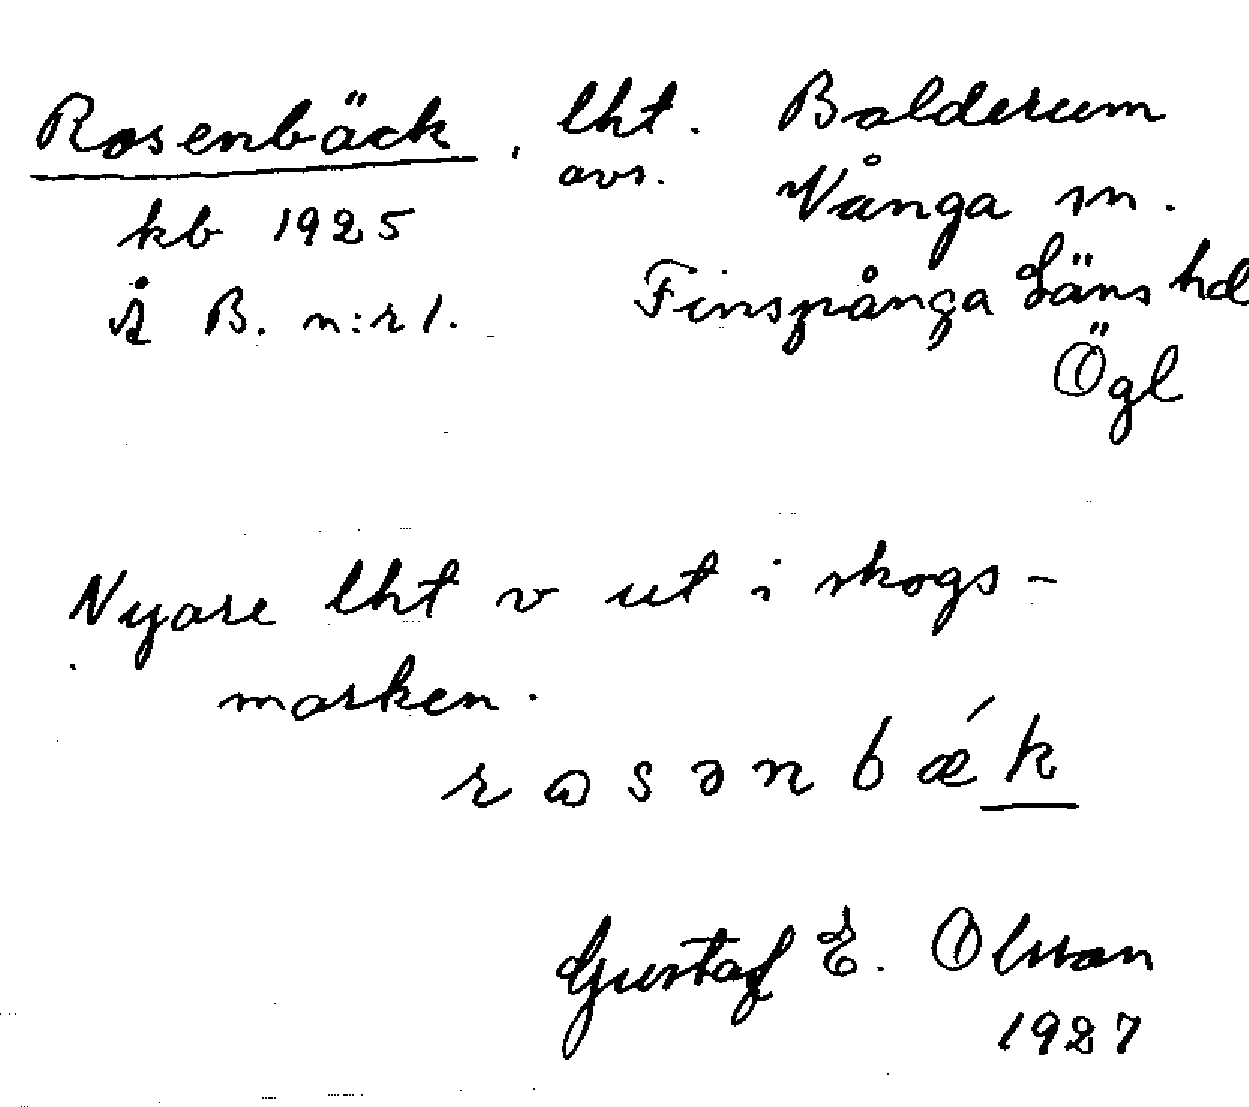 Rosenbäck, lht. Balderum
avs. Vånga sn.
kb 1925
Å B. n:r 1. Finspånga Läns hd
Ögl
Nyare lht v ut i skogs-
marken.
rosənbæ´k
Gustaf E. Olsson
1927